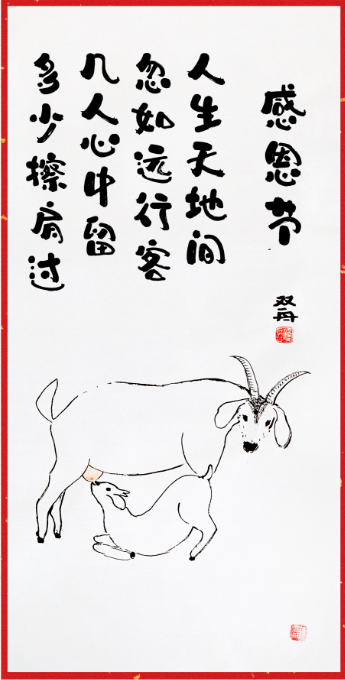 感恩节
双舟
人生天地间
忽如远行客
几人心中留
多少擦肩过